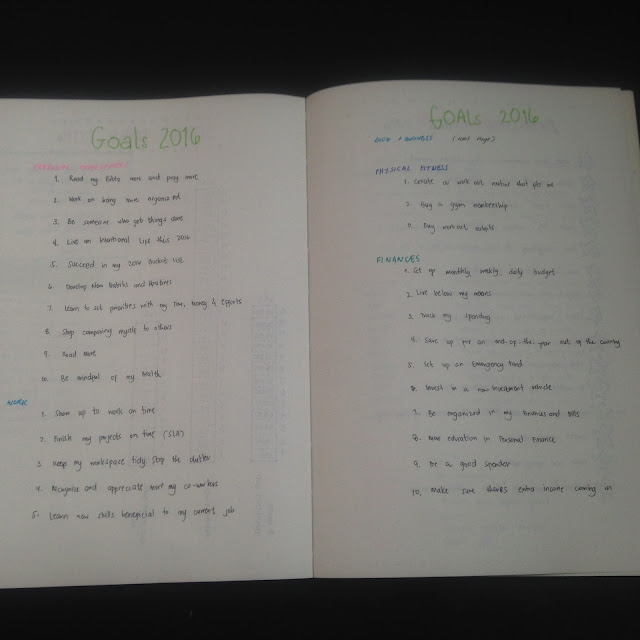 Goals 2016
PERSONAL DEVELOPMENT
1. Read my Bible more and pray more
2. Work on being more organized
3. Be someone who gets things done
4. Live an Intentional Life this 2016
5. Succeed in my 2016 Bucket list
6. Develop New habits and Routines
7. Learn to set priorities with my time, money & efforts
8. Stop comparing myself to others
9. Read more
10. Be mindful of my health
WORK
1. Show up to work on time
2. Finish my projects on time (SLA)
3. Keep my workspace tidy. Stop the clutter
4. Recognize and appreciate more my co-workers
5. Learn new skills beneficial to my current job
GOALS 2016
BUSINESS (next page)
PHYSICAL FITNESS
1. Create a work out routine that fits me
2. Buy a gym membership
3. Buy workout outfits
FINANCES
1. Set up monthly, weekly, daily budget
2. Live below my means
3. Track my spending
4. Save up for an end of the year out of the country
5. Set up an Emergency Fund
6. Invest in a new investment vehicle
7. Be organized in my finances and bills
8. More education in Personal Finance
9. Be a good spender
10. Make sure extra income coming in